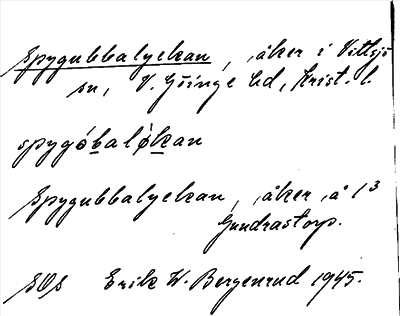 Spygubbalyckan, åker i Vittsjö
sn, V. Göinge hd, Krist. l.
spygóbalỳkan
Spygubbalyckan, åker å 1³
Gundrastorp.
SOS Erik W. Bergenrud 1945.